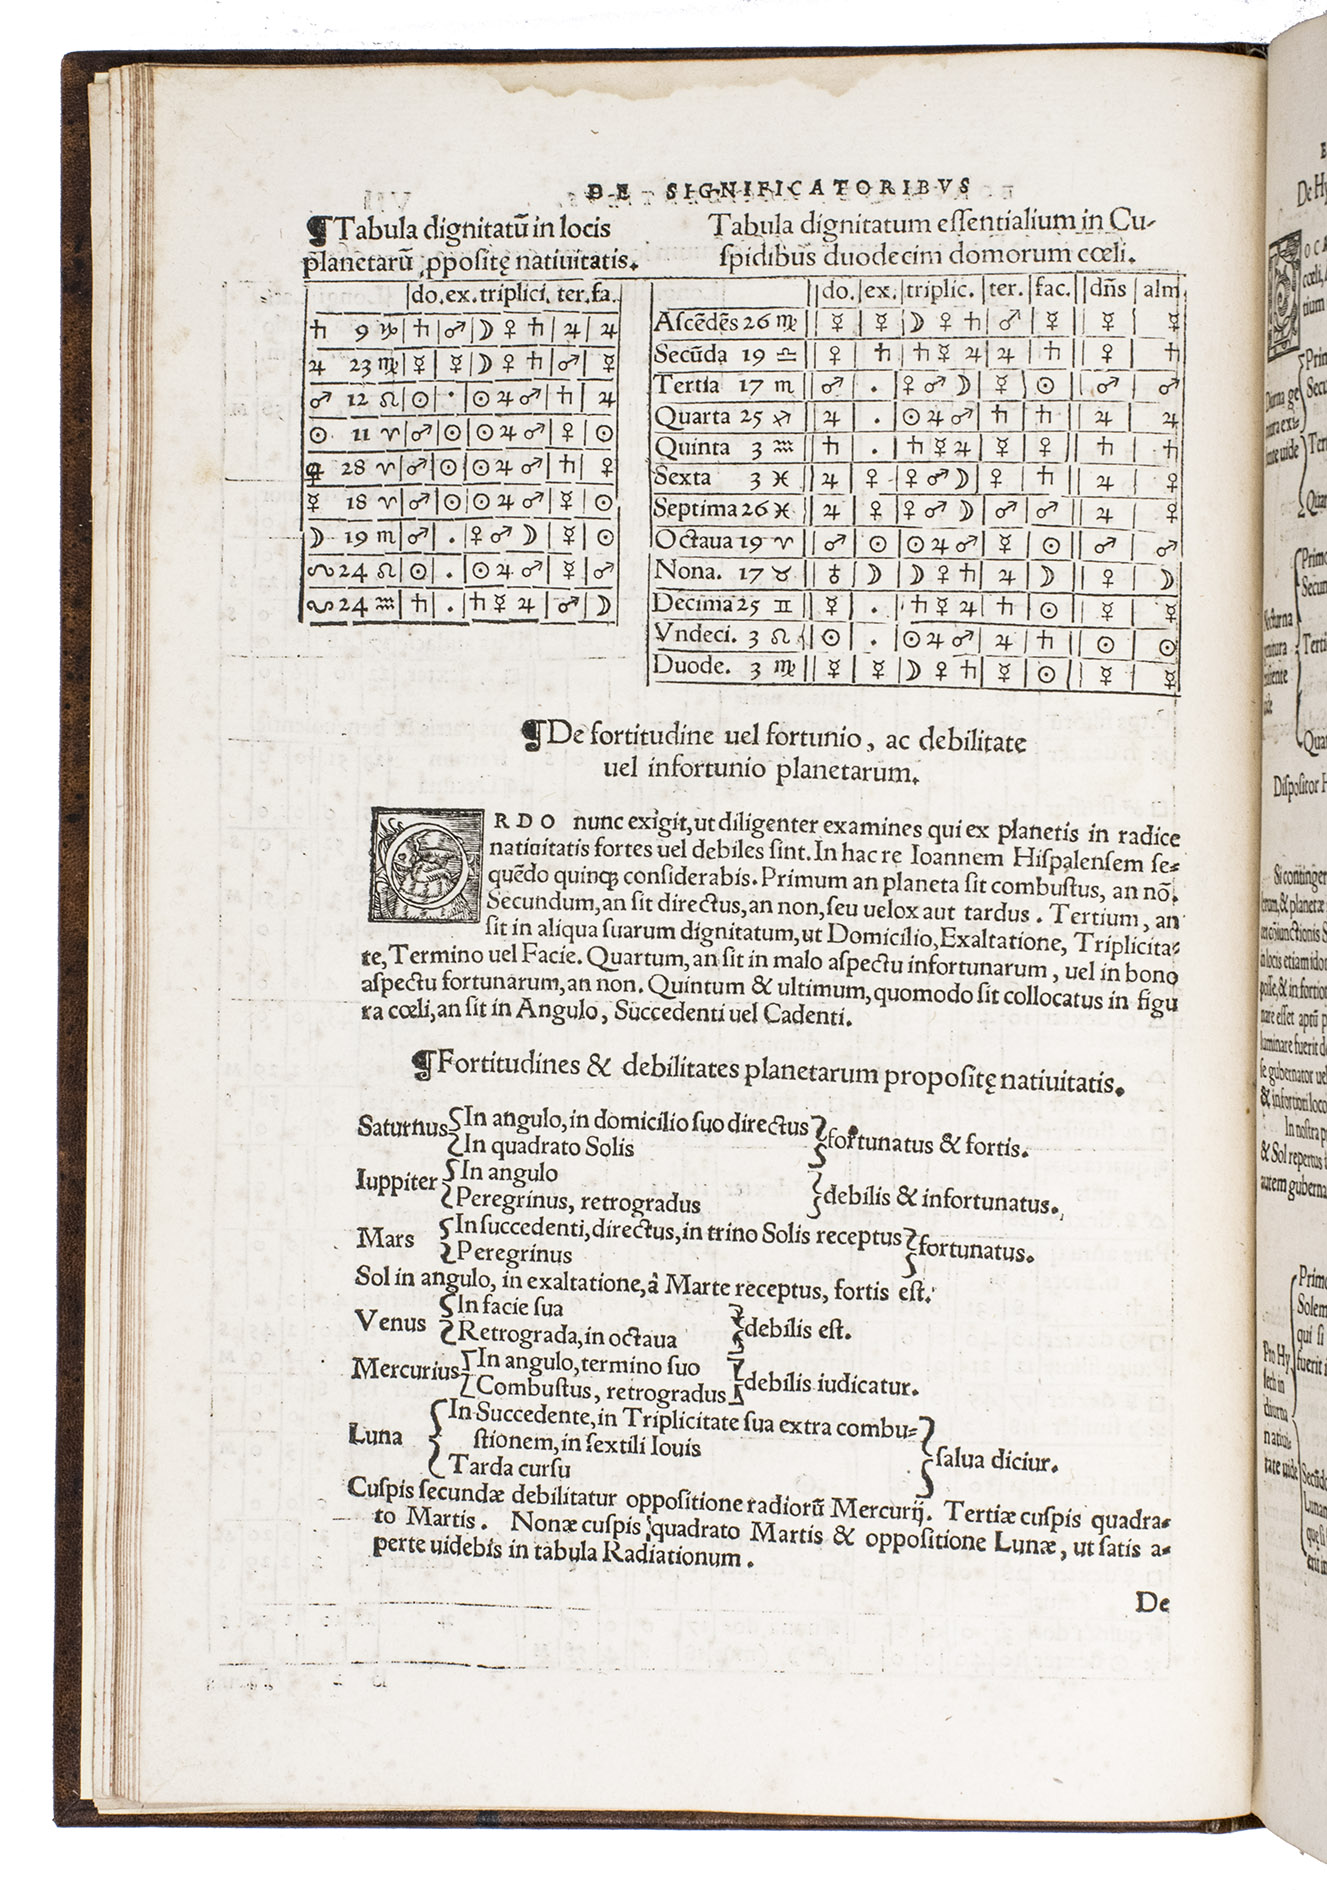 DE SIGNIFICATORIBVS
¶Tabula dignitatũ in locis
planetarũ ꝓpositę natiuitatis.
do. ex. triplici. ter. fa.
♄ 9 ♑ ♄ ♂ ☽ ♀ ♄ ♃ ♃
♃ 23 ♍ ☿ ☿ ☽ ♀ ♄ ♂ ☿
♂ 12 ♌ ☉ . ☉ ♃ ♂ ♄ ♃
☉ 11 ♈ ♂ ☉ ☉ ♃ ♂ ♀ ☉
♀ 28 ♈ ♂ ☉ ☉ ♃ ♂ ♄ ♀
☿ 18 ♈ ♂ ☉ ☉ ♃ ♂ ☿ ☉
☽ 19 ♏ ♂ . ♀ ♂ ☽ ☿ ☉
☊ 24 ♌ ☉ . ☉ ♃ ♂ ☿ ♂
☋ 24 ♒ ♄ . ♄ ☿ ♃ ♂ ☽
Tabula dignitatum essentialium in Cu-
spidibus duodecim domorum cœli.
do. ex. triplic. ter. fac. dñs alm.
Ascẽdẽs 26 ♍ ☿ ☿ ☽ ♀ ♄ ♂ ☿ ☿ ☿
Secũda 19 ♎ ♀ ♄ ♄ ☿ ♃ ♃ ♄ ♀ ♄
Tertia 17 ♏ ♂ . ♀ ♂ ☽ ☿ ☉ ♂ ♂
Quarta 25 ♐ ♃ . ☉ ♃ ♂ ♄ ♄ ♃ ♃
Quinta 3 ♒ ♄ . ♄ ☿ ♃ ☿ ♀ ♄ ♄
Sexta 3 ♓ ♃ ♀ ♀ ♂ ☽ ♀ ♄ ♃ ♀
Septima 26 ♓ ♃ ♀ ♀ ♂ ☽ ♂ ♂ ♃ ♀
Octaua 19 ♈ ♂ ☉ ☉ ♃ ♂ ☿ ☉ ♂ ♂
Nona. 17 ♉ ♁ ☽ ☽ ♀ ♄ ♃ ☽ ♀ ☽
Decima 25 ♊ ☿ . ♄ ☿ ♃ ♄ ☉ ☿ ☿
Vndeci. 3 ♌ ☉ . ☉ ♃ ♂ ♃ ♄ ☉ ☉
Duode. 3 ♍ ☿ ☿ ☽ ♀ ♄ ☿ ☉ ☿ ☿
¶De fortitudine uel fortunio, ac debilitate
uel infortunio planetarum.
ORDO nunc exigit, ut diligenter examines qui ex planetis in radice
natiuitatis fortes uel debiles sint. In hac re Ioannem Hispalensem se-
quẽdo quinqꝫ considerabis. Primum an planeta sit combustus, an nõ.
Secundum, an sit directus, an non, seu uelox aut tardus. Tertium, an
sit in aliqua suarum dignitatum, ut Domicilio, Exaltatione, Triplicita-
te, Termino uel Facie. Quartum, an sit in malo aspectu infortunarum, uel in bono
aspectu fortunarum, an non. Quintum & ultimum, quomodo sit collocatus in figu
ra cœli, an sit in Angulo, Succedenti uel Cadenti.
¶Fortitudines & debilitates planetarum propositę natiuitatis.
Saturnus { In angulo, in domicilio suo directus
In quadrato Solis } fortunatus & fortis.
Iuppiter { In angulo
Peregrinus, retrogradus } debilis & infortunatus.
Mars { In succedenti, directus, in trino Solis receptus
Peregrinus } fortunatus.
Sol in angulo, in exaltatione, â Marte receptus, fortis est.
Venus { In facie sua
Retrograda, in octaua } debilis est.
Mercurius { In angulo, termino suo
Combustus, retrogradus } debilis iudicatur.
Luna { In Succedente, in Triplicitate sua extra combu-
stionem, in sextili Iouis
Tarda cursu } salua diciur.
Cuspis secundæ debilitatur oppositione radiorũ Mercurij. Tertiæ cuspis quadra-
to Martis. Nonæ cuspis quadrato Martis & oppositione Lunæ, ut satis a-
perte uidebis in tabula Radiationum.
De